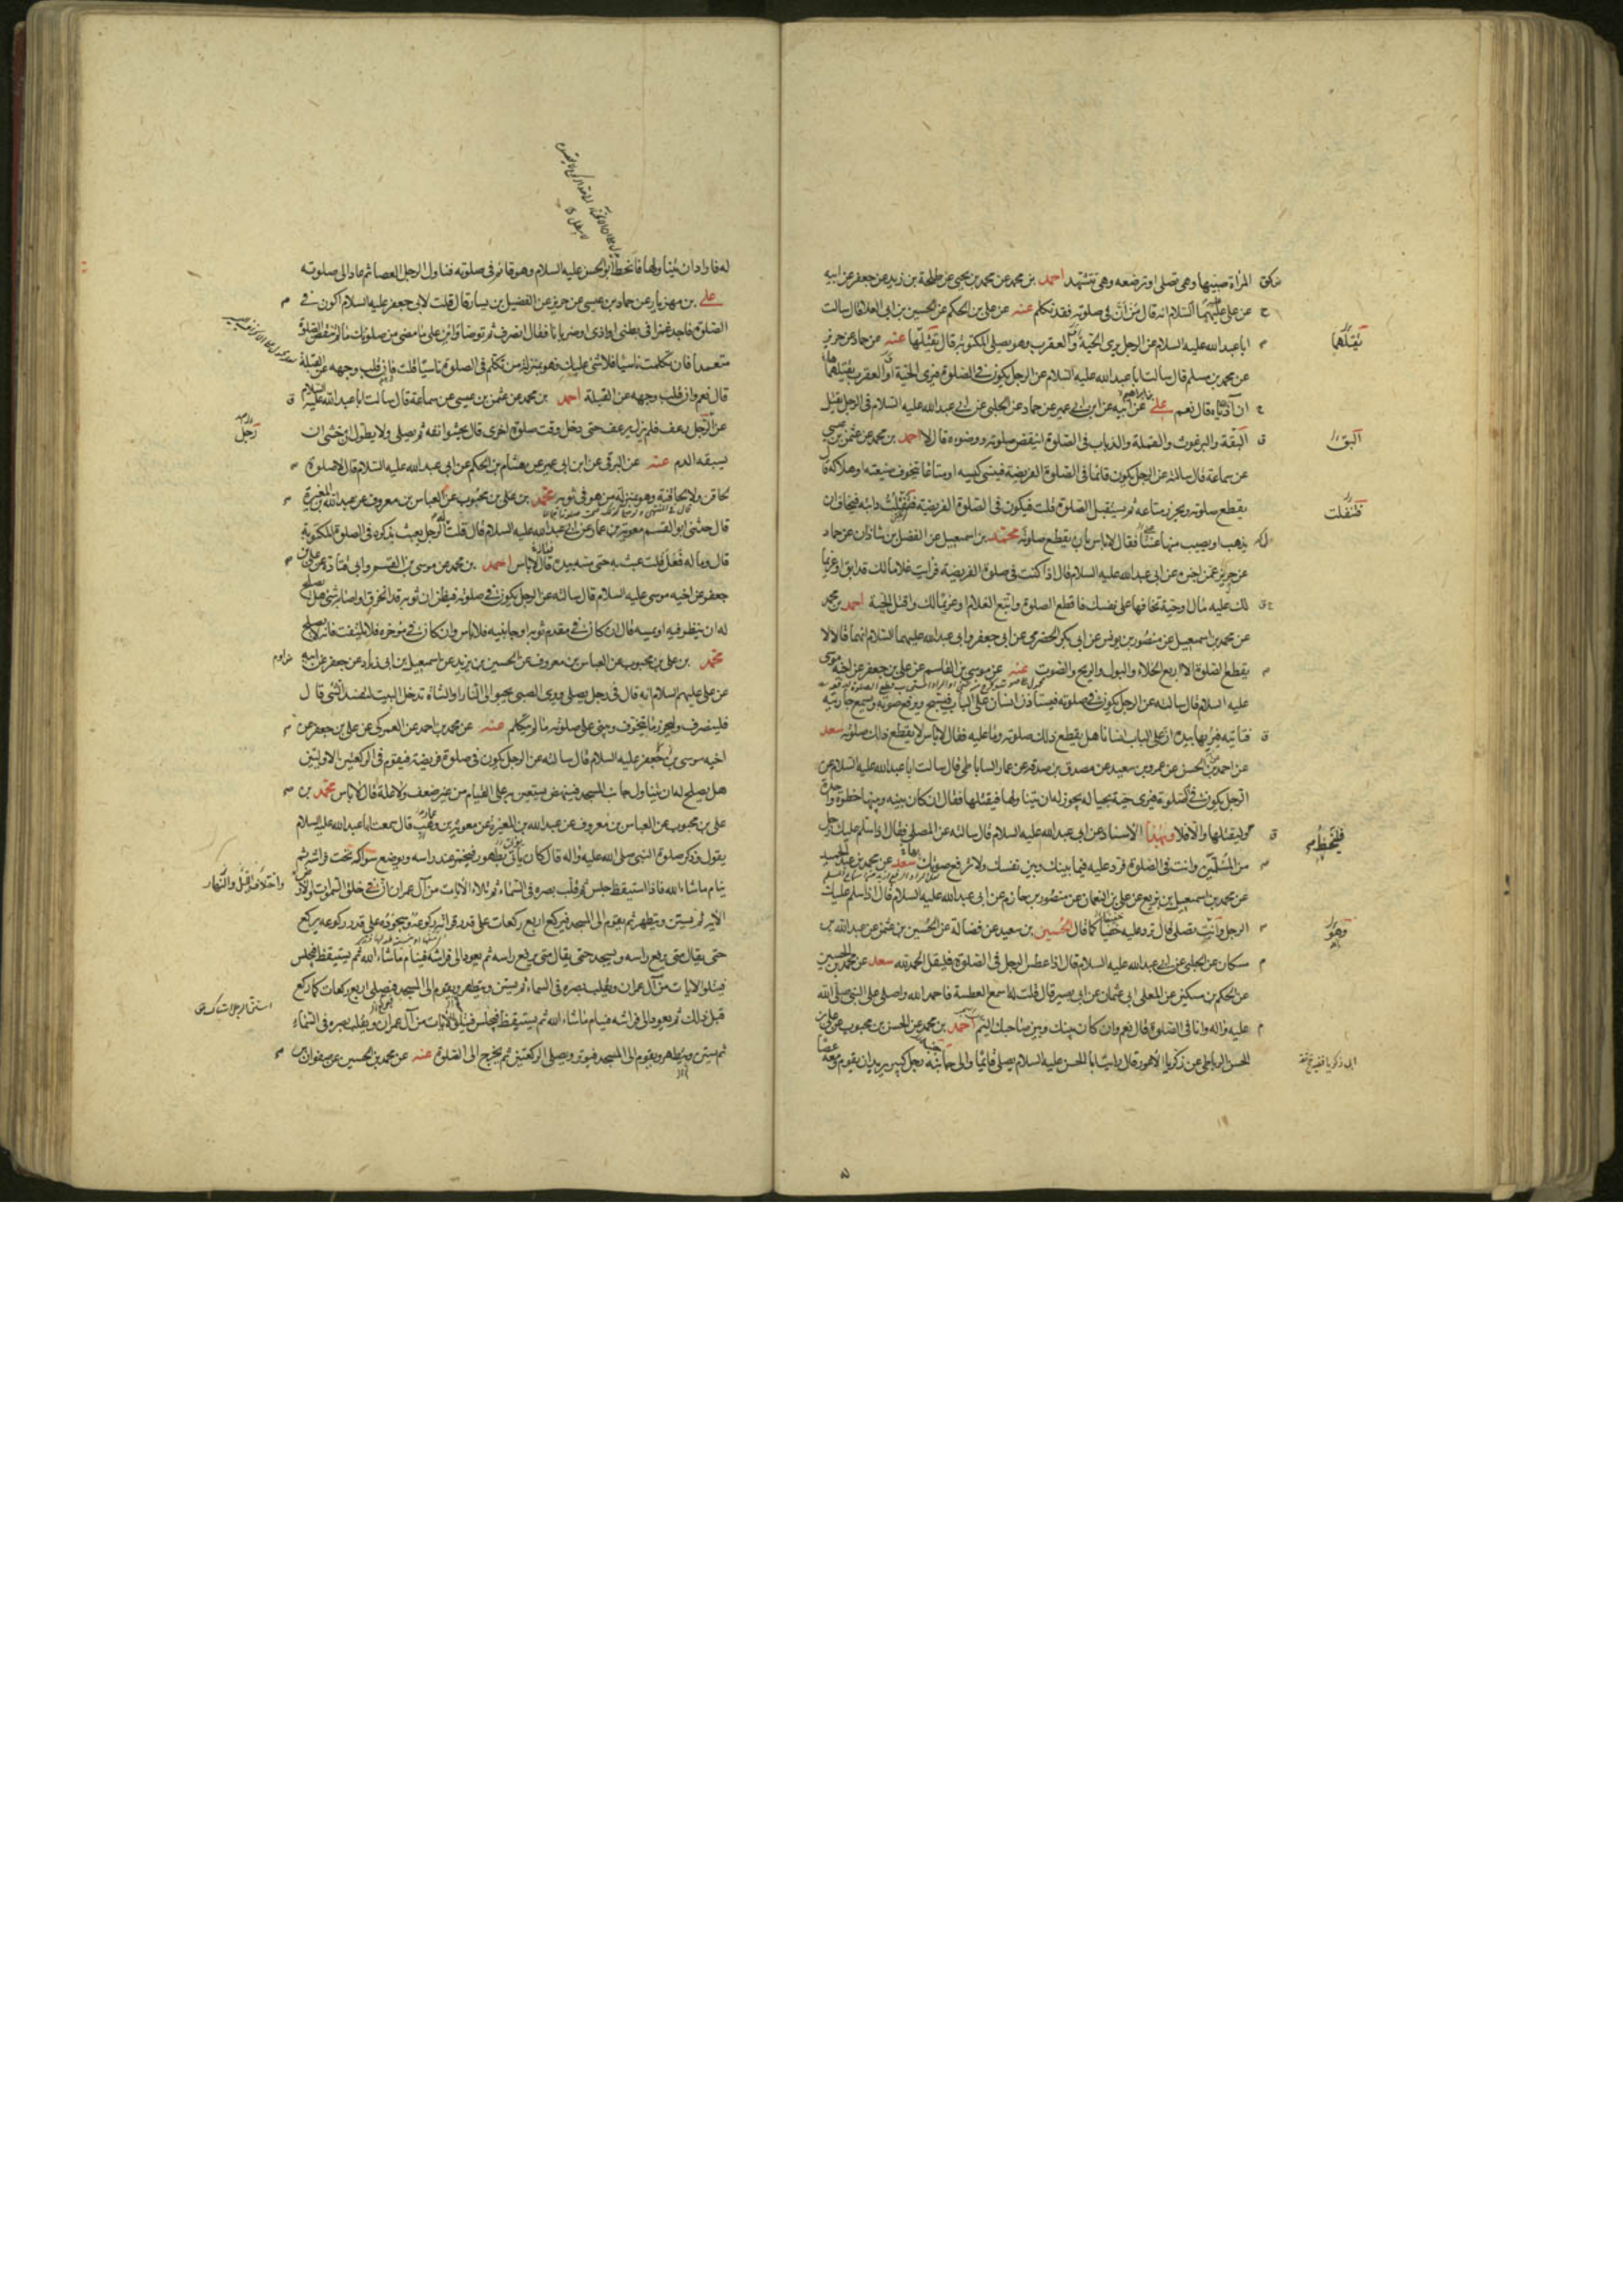 المرأة صبيها وهي تصلي او ترضعه وهي تتشهد احمد بن محمد عن محمد بن يحيى عن طلحة بن زيد عن جعفر عن ابيه
عن علي عليهما السلام انه قال من أنّ في صلوته فقد تكلم عنه عن علي بن الحكم عن الحسين بن ابي العلا قال سالت
ابا عبد الله عليه السلام عن الرجل يرى الحية والعقرب وهو يصلي المكتوبة قال يقتلها عنه عن حماد عن حريز
عن محمد بن مسلم قال سالت ابا عبد الله عليه السلام عن الرجل يكون في الصلوة فيرى الحية او العقرب يقتلهما
ان آذياه قال نعم علي عن ابيه عن ابن ابي عمير عن حماد عن الحلبي عن ابي عبد الله عليه السلام في الرجل يقتل
البقة والبرغوث والقملة والذباب في الصلوة اينقض صلوته ووضوءه قال لا احمد بن محمد عن عثمن بن عيسى
عن سماعة قال سالته عن الرجل يكون قائما في الصلوة الفريضة فينسى كيسه او متاعا يتخوف ضيعته او هلاكه قال
يقطع صلوته ويحرز متاعه ثم يستقبل الصلوة قلت فيكون في الصلوة الفريضة فتفلت دابته فيخاف ان
يذهب او يصيب منها عنتا فقال لا باس بان يقطع صلوته محمد بن اسمعيل عن الفضل بن شاذان عن حماد
عن حريز عمن اخبره عن ابي عبد الله عليه السلام قال اذا كنت في صلوة الفريضة فرايت غلاما لك قد ابق او غريما
لك عليه مال او حية تخافها على نفسك فاقطع الصلوة واتبع الغلام او غريما لك واقتل الحية احمد بن محمد
عن محمد بن اسمعيل عن منصور بن يونس عن ابي بكر الحضرمي عن ابي جعفر وابي عبد الله عليهما السلام انهما قالا لا
يقطع الصلوة الا اربع الخلاء والبول والريح والصوت عنه عن موسى بن القاسم عن علي بن جعفر عن اخيه موسى
عليه السلام قال سالته عن الرجل يكون في صلوته فيستاذن انسان على الباب فيسبح ويرفع صوته ويسمع جاريته
فتاتيه فيريها بيده ان على الباب انسانا هل يقطع ذلك صلوته وما عليه فقال لا باس لا يقطع ذلك صلوته سعد
عن احمد بن الحسن عن عمرو بن سعيد عن مصدق بن صدقة عن عمار الساباطي قال سالت ابا عبد الله عليه السلام عن
الرجل يكون في الصلوة فيرى حية بحياله يجوز له ان يتناولها فيقتلها فقال ان كان بينه وبينها خطوة واحدة
فليخط وليقتلها والا فلا وبهذا الاسناد عن ابي عبد الله عليه السلام قال سالته عن المصلي فقال اذا سلم عليك رجل
من المسلمين وانت في الصلوة فرد عليه فيما بينك وبين نفسك ولا ترفع صوتك سعد عن محمد بن عبد الحميد
عن محمد بن اسمعيل بن بزيع عن علي بن النعمان عن منصور بن حازم عن ابي عبد الله عليه السلام قال اذا سلم عليك
الرجل وانت تصلي قال ترد عليه خفيا كما قال الحسين بن سعيد عن فضالة عن الحسين بن عثمن عن عبد الله بن
مسكان عن الحلبي عن ابي عبد الله عليه السلام قال اذا عطس الرجل في الصلوة فليقل الحمد لله سعد عن محمد بن الحسين
عن الحكم بن مسكين عن المعلى ابي عثمان عن ابي بصير قال قلت له اسمع العطسة فاحمد الله واصلي على النبي صلى الله
عليه واله وانا في الصلوة قال نعم وان كان بينك وبين صاحبك اليم احمد بن محمد عن الحسن بن محبوب عن علي بن
الحسن الرباطي عن زكريا الاعور قال رايت ابا الحسن عليه السلام يصلي قائما والى جانبه رجل كبير يريد ان يقوم ومعه عصا
يقتلهما
البق
فتفلت
فليخط
وهو
له فاراد ان يتناولها فانحط ابو الحسن عليه السلام وهو قائم في صلوته فناول الرجل العصا ثم عاد الى صلوته
علي بن مهزيار عن حماد بن عيسى عن حريز عن الفضيل بن يسار قال قلت لابي جعفر عليه السلام اكون في
الصلوة فاجد غمزا في بطني او اذى او ضربانا فقال انصرف ثم توضأ وابن على ما مضى من صلوتك ما لم تنقض الصلوة
متعمدا فان تكلمت ناسيا فلا شيء عليك وهو بمنزلة من تكلم في الصلوة ناسيا قلت فان قلب وجهه عن القبلة
قال نعم وان قلب وجهه عن القبلة احمد بن محمد عن عثمن بن عيسى عن سماعة قال سالت ابا عبد الله عليه السلام
عن الرجل رعف فلم يزل يرعف حتى دخل وقت صلوة اخرى قال يحشو انفه ثم يصلي ولا يطول ان خشي ان
يسبقه الدم عنه عن البرقي عن ابن ابي عمير عن هشام بن الحكم عن ابي عبد الله عليه السلام قال لا صلوة
لحاقن ولا لحاقنة وهو بمنزلة من هو في ثوبه محمد بن علي بن محبوب عن العباس بن معروف عن عبد الله بن المغيرة
قال حدثني ابو القسم معوية بن عمار عن ابي عبد الله عليه السلام قال قلت له الرجل يعبث بذكره في الصلوة المكتوبة
قال وما له فعل قلت عبث به حتى مسه بيده قال لا باس احمد بن محمد عن موسى بن القسم وابي قتادة عن علي بن
جعفر عن اخيه موسى عليه السلام قال سالته عن الرجل يكون في صلوته فيظن ان ثوبه قد انخرق او اصابه شيء هل يصلح
له ان ينظر فيه او يمسه قال ان كان في مقدم ثوبه او جانبيه فلا باس وان كان في مؤخره فلا يلتفت فانه لا يصلح
محمد بن علي بن محبوب عن العباس بن معروف عن الحسين بن يزيد عن اسمعيل بن ابي زياد عن جعفر عن ابيه
عن علي عليهم السلام انه قال في رجل يصلي ويرى الصبي يحبو الى النار او الشاة تدخل البيت لتفسد الشيء قال
فلينصرف وليحرز ما يتخوف ويبني على صلوته ما لم يتكلم عنه عن محمد بن احمد عن العمركي عن علي بن جعفر عن
اخيه موسى بن جعفر عليه السلام قال سالته عن الرجل يكون في صلوة فريضة فيقوم في الركعتين الاوليتين
هل يصلح له ان يتناول جانب المسجد فينهض يستعين به على القيام من غير ضعف ولا علة قال لا باس محمد بن
علي بن محبوب عن العباس بن معروف عن عبد الله بن المغيرة عن معوية بن وهب قال سمعت ابا عبد الله عليه السلام
يقول وذكر صلوة النبي صلى الله عليه واله قال كان ياتي بطهور فيخمر عند راسه ويوضع سواكه تحت فراشه ثم
ينام ما شاء الله فاذا استيقظ جلس ثم قلب بصره في السماء ثم تلا الآيات من آل عمران ان في خلق السموات والارض
الآية ثم يستن ويتطهر ثم يقوم الى المسجد فيركع اربع ركعات على قدر قرائته ركوعه وسجوده على قدر ركوعه يركع
حتى يقال متى يرفع راسه ويسجد حتى يقال متى يرفع راسه ثم يعود الى فراشه فينام ما شاء الله ثم يستيقظ فيجلس
فيتلو الآيات من آل عمران ويقلب بصره في السماء ثم يستن ويتطهر ويقوم الى المسجد فيصلي اربع ركعات كما ركع
قبل ذلك ثم يعود الى فراشه فينام ما شاء الله ثم يستيقظ فيجلس فيتلو الآيات من آل عمران ويقلب بصره في السماء
ثم يستن ويتطهر ويقوم الى المسجد فيوتر ويصلي الركعتين ثم يخرج الى الصلوة عنه عن محمد بن الحسين عن صفوان
رجل
واختلاف الليل والنهار